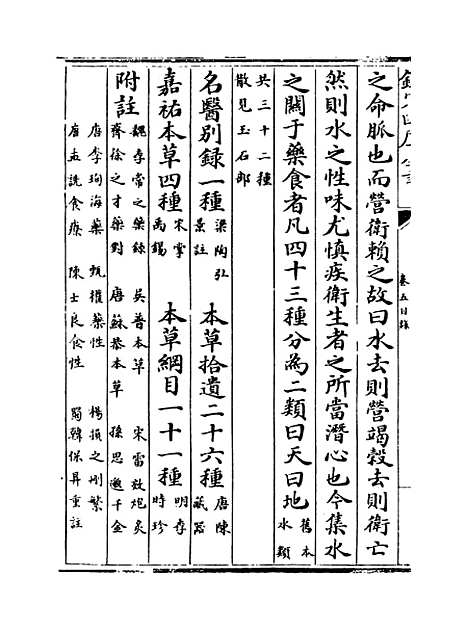 欽定四庫全書
卷五目錄
之命脈也而營衛賴之故曰水去則營竭穀去則衛亡
然則水之性味尤慎疾衛生者之所當潛心也今集水
之關于藥食者凡四十三種分為二類曰天曰地舊本水類
共三十二種散見玉石部
名醫別錄一種梁陶弘景註　本草拾遺二十六種唐陳藏器
嘉祐本草四種宋掌禹錫　本草綱目一十一種明李時珍
附註　魏李當之藥錄　吳普本草　宋雷敩炮炙
齊徐之才藥對　唐蘇恭本草　孫思邈千金
唐李珣海藥　甄權藥性　楊損之刪繁
唐孟詵食療　陳士良食性　蜀韓保昇重註